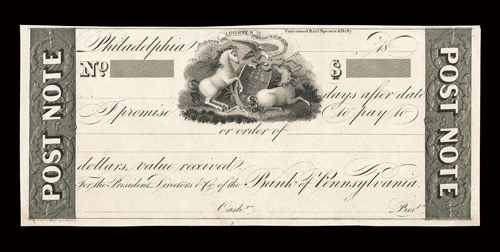 POST NOTE
Philadelphia, 18
Underwood Bald Spencer & Hufty
No $
days after date
I promise to pay to
or order of
dollars, value received,
For the President, Directors & Co. of the Bank of Pennsylvania.
Cashr. Prest.
POST NOTE